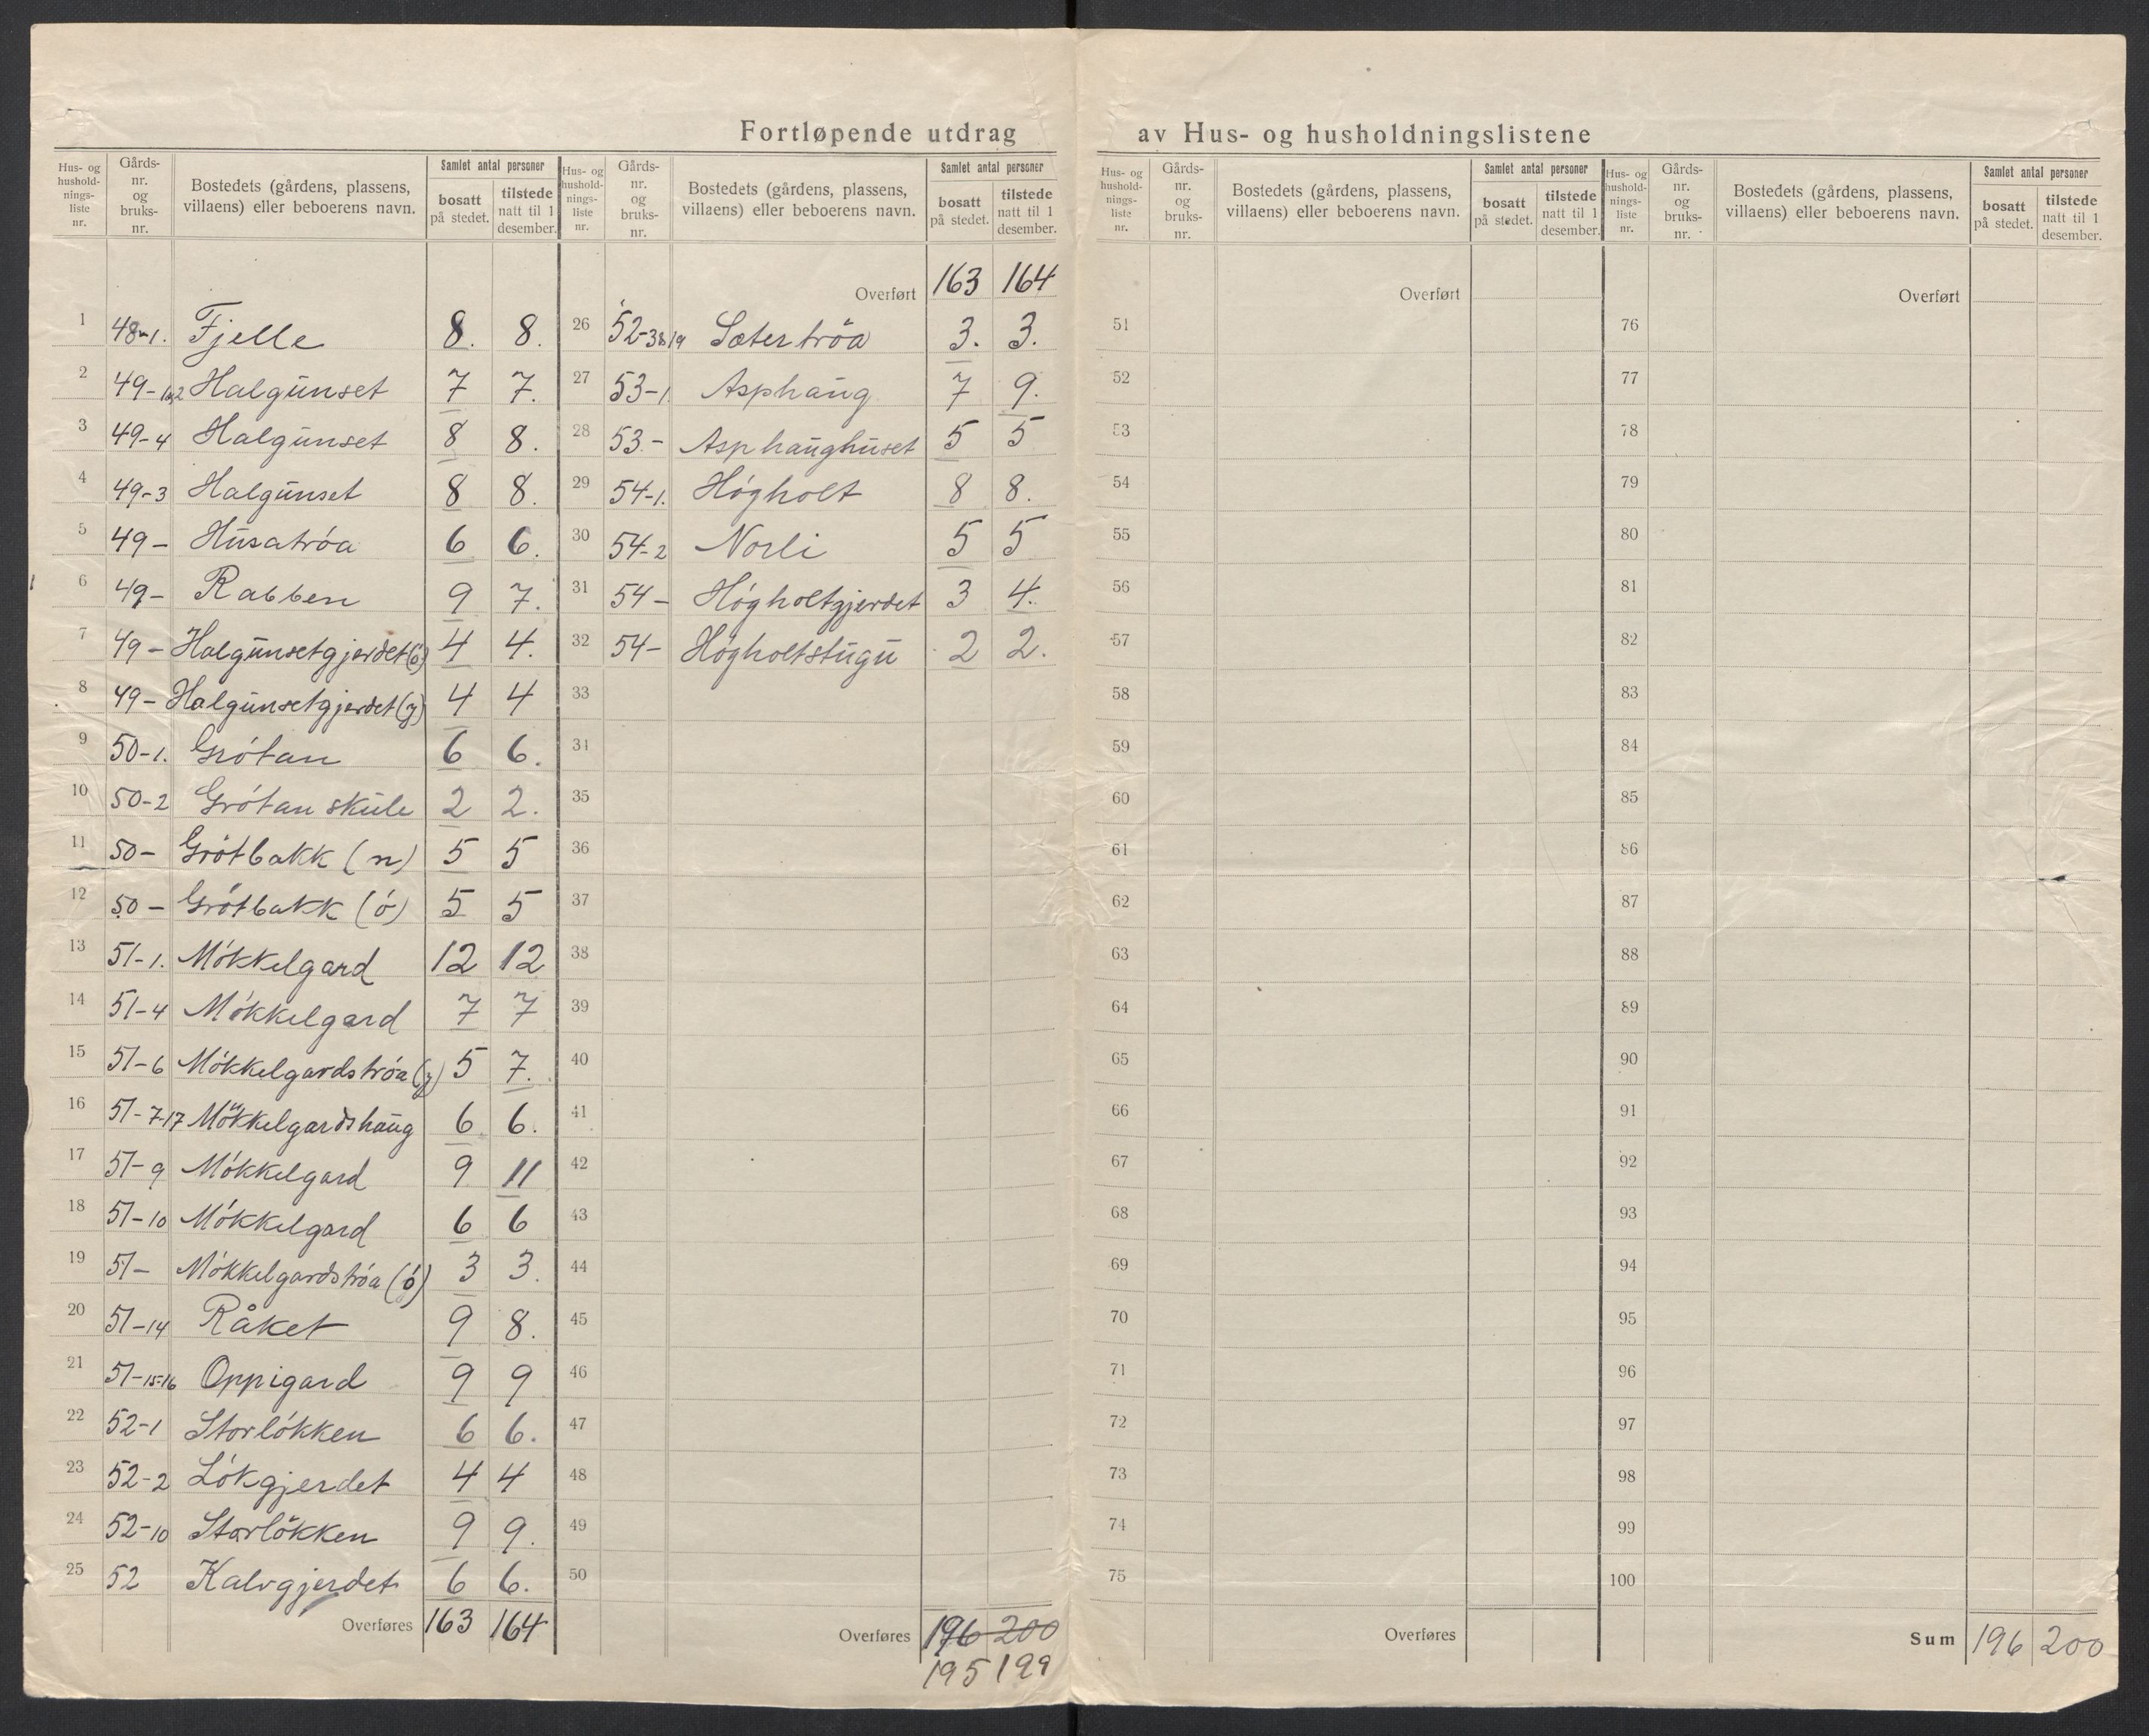 Fortløpende utdrag av Hus- og husholdningslistene
Hus- og husholdnings-liste nr. | Gårds-nr. og bruks-nr. | Bostedets (gårdens, plassens, villaens) eller beboerens navn. | Samlet antal personer | bosatt på stedet. | tilstede natt til 1 desember.
1 48-1. Fjelle 8. 8.
2 49-1,2 Halgunset 7 7.
3 49-4 Halgunset 8 8.
4 49-3 Halgunset 8 8.
5 49- Husatróa 6 6.
6 49- Rabben 9 7.
7 49- Halgunsetgjerdet (ó) 4 4.
8 49- Halgunsetgjerdet (y) 4 4
9 50-1. Grótan 6 6.
10 50-2 Grótan skule 2 2.
11 50- Grótbakk (n) 5 5
12 50- Grótbakk (ó) 5 5
13 51-1. Mókkelgard 12 12
14 51-4 Mókkelgard 7 7
15 51-6 Mókkelgardstróa (y) 5 7.
16 51-7-17 Mökkelgardshaug 6 6.
17 51-9 Mókkelgard 9 11
18 51-10 Mókkelgard 6 6
19 51- Mókkelgardstróa (ó) 3 3.
20 51-14 Råket 9 8.
21 51-15-16 Oppigard 9 9
22 52-1 Storlókken 6 6.
23 52-2 Lókgjerdet 4 4
24 52-10 Storlókken 9 9.
25 52 Kalvgjerdet 6 6.
Overføres 163 164
Hus- og husholdnings-liste nr. | Gårds-nr. og bruks-nr. | Bostedets (gårdens, plassens, villaens) eller beboerens navn. | Samlet antal personer | bosatt på stedet. | tilstede natt til 1 desember.
Overført 163 164
26 52-3 Sætertröa 3. 3.
27 53-1 Asphaug 7 9.
28 53- Asphaughuset 5 5
29 54-1. Hógholt 8 8.
30 54-2 Norli 5 5
31 54- Hógholtgjerdet 3 4.
32 54- Hógholtstugu 2 2.
33
34
35
36
37
38
39
40
41
42
43
44
45
46
47
48
49
50
Overføres 196 200
195 199
Hus- og husholdnings-liste nr. | Gårds-nr. og bruks-nr. | Bostedets (gårdens, plassens, villaens) eller beboerens navn. | Samlet antal personer | bosatt på stedet. | tilstede natt til 1 desember.
Overført
51
52
53
54
55
56
57
58
59
60
61
62
63
64
65
66
67
68
69
70
71
72
73
74
75
Overføres
Hus- og husholdnings-liste nr. | Gårds-nr. og bruks-nr. | Bostedets (gårdens, plassens, villaens) eller beboerens navn. | Samlet antal personer | bosatt på stedet. | tilstede natt til 1 desember.
Overført
76
77
78
79
80
81
82
83
84
85
86
87
88
89
90
91
92
93
94
95
96
97
98
99
100
Sum 196 200